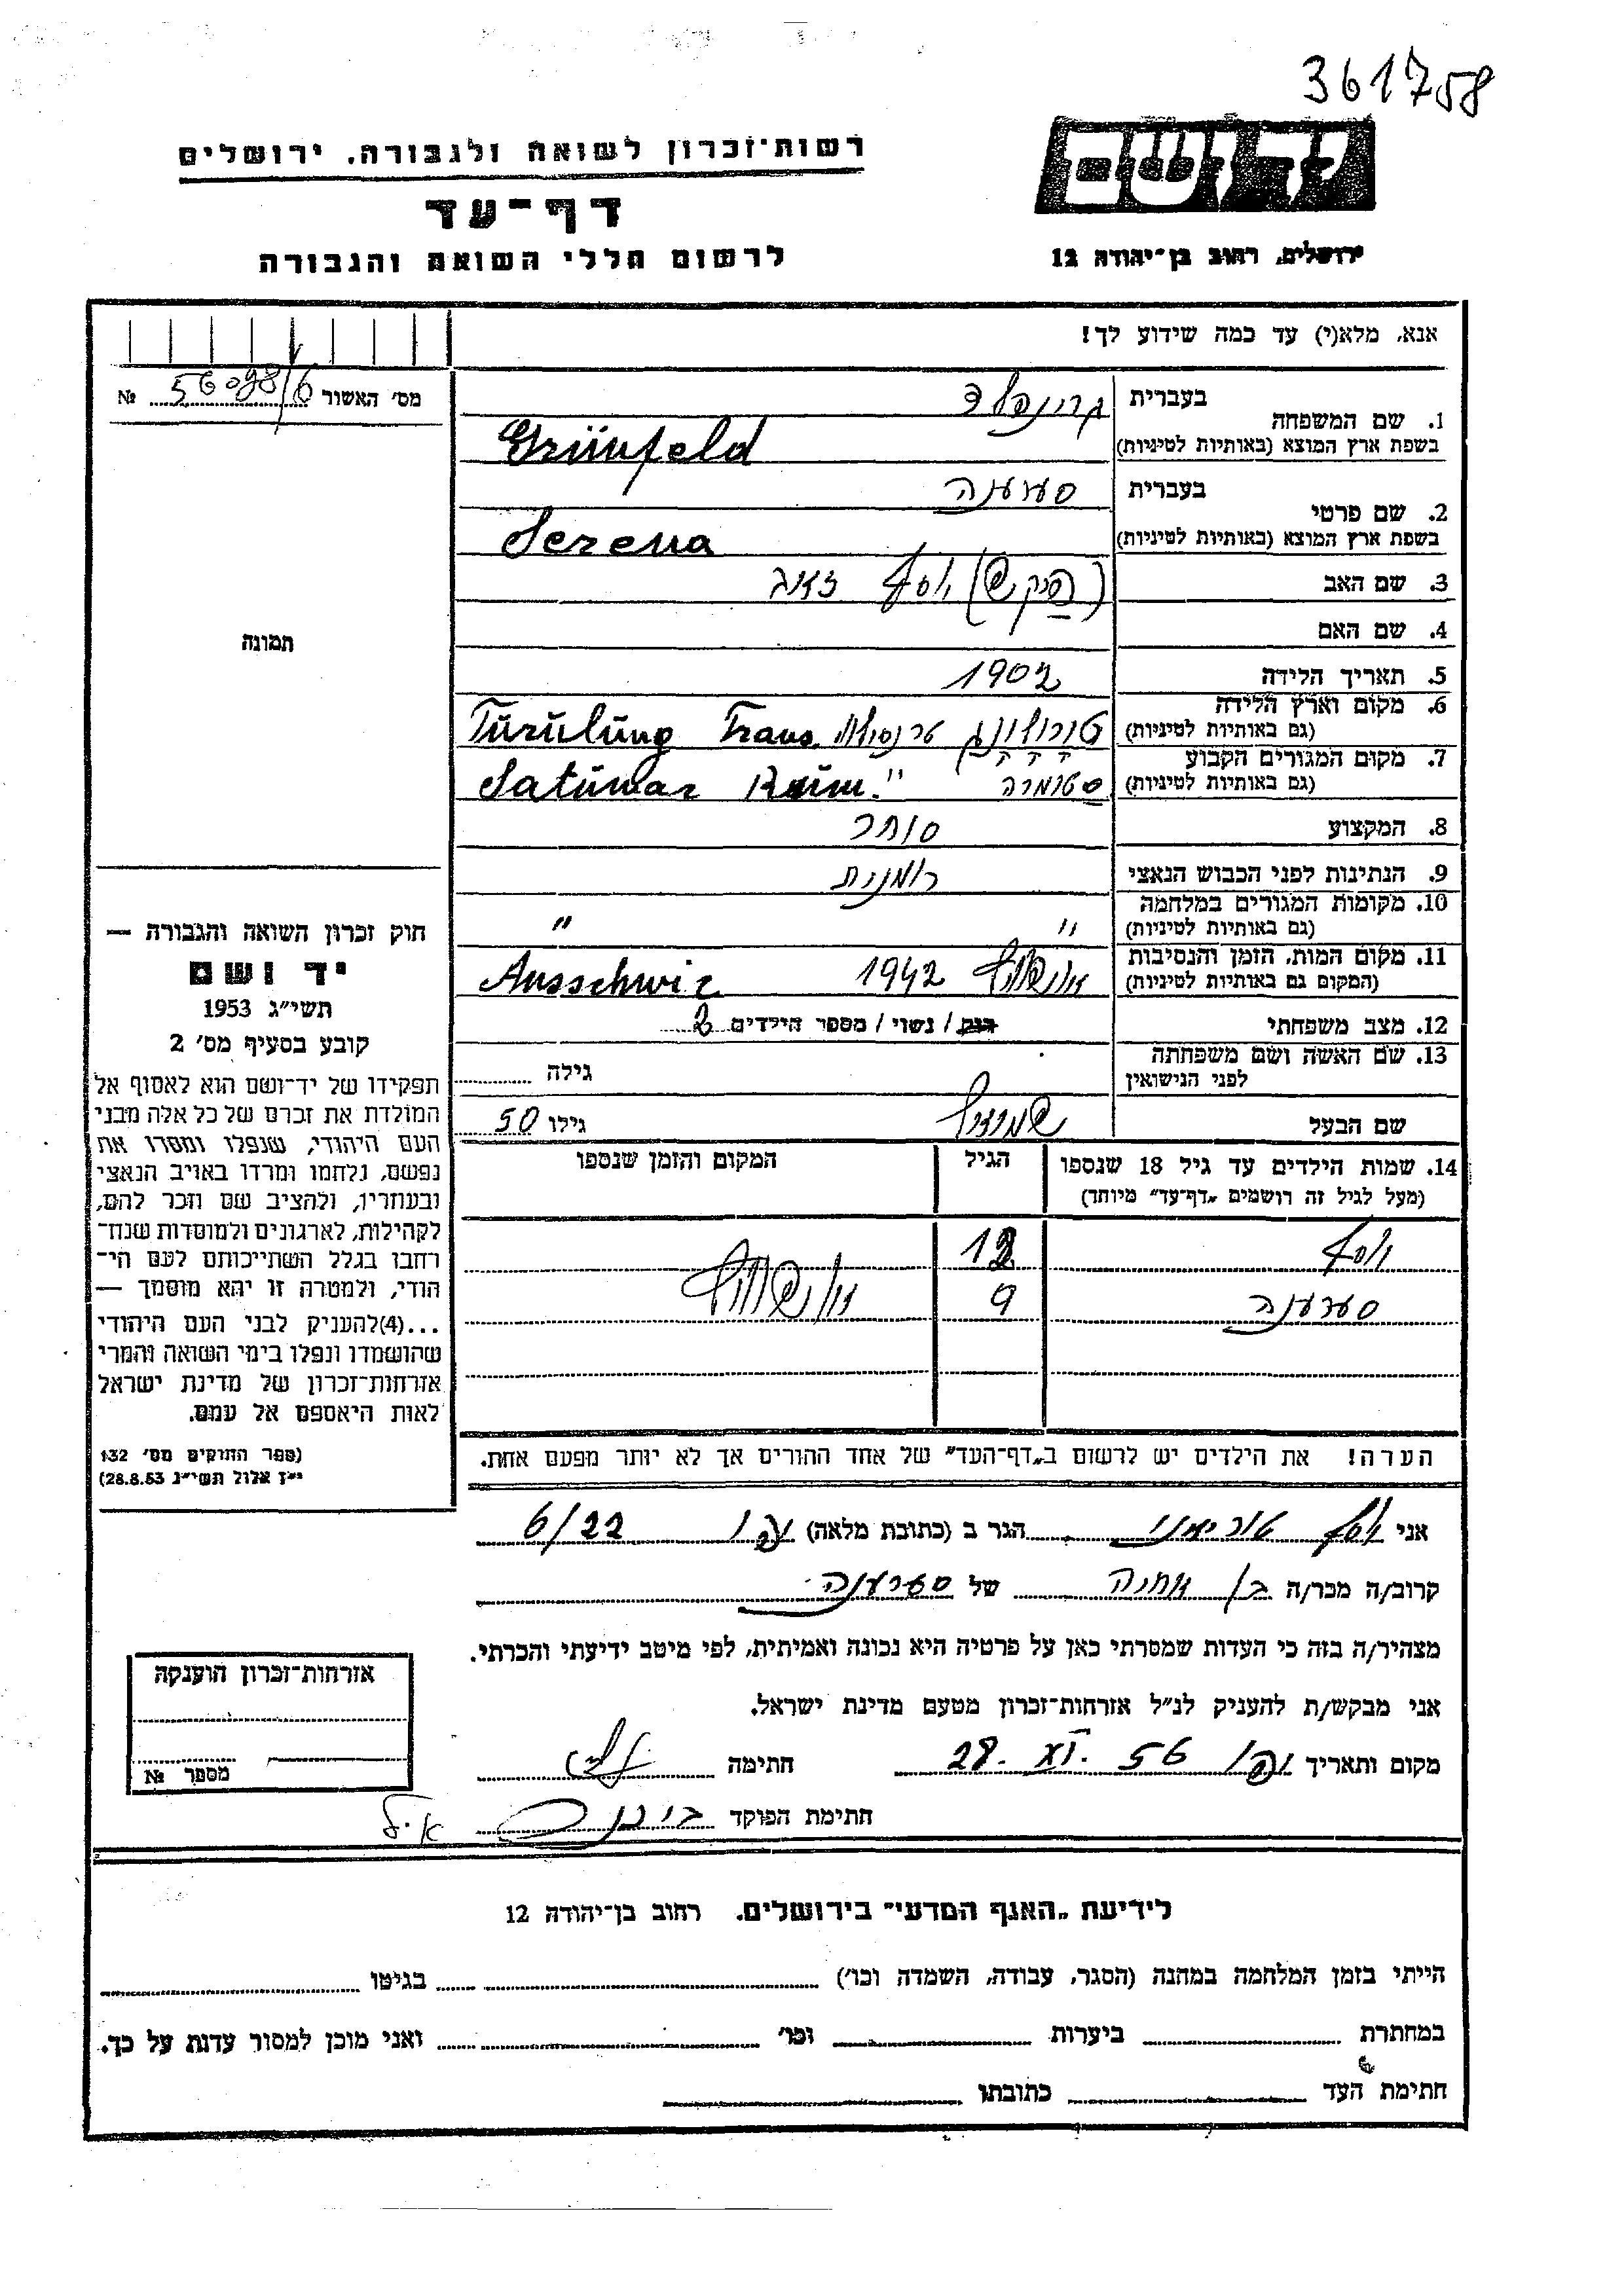 361758
רשות־זכרון לשואה ולגבורה, ירושלים
יד ושם
דף־עד
לרשום חללי השואה והגבורה
ירושלים, רחוב בן־יהודה 12
אנא, מלא(י) עד כמה שידוע לך!
מס׳ האשור 56098/6 №
תמונה
1. שם המשפחה בעברית גרינפלד
בשפת ארץ המוצא (באותיות לטיניות) Grünfeld
2. שם פרטי בעברית סערענה
בשפת ארץ המוצא (באותיות לטיניות) Serena
3. שם האב יוסף
4. שם האם
5. תאריך הלידה 1902
6. מקום וארץ הלידה
(גם באותיות לטיניות) Turulung Trans.
7. מקום המגורים הקבוע
(גם באותיות לטיניות) סטומרה Satumar Rum. "
8. המקצוע סוחר
9. הנתינות לפני הכבוש הנאצי רומנית
10. מקומות המגורים במלחמה
(גם באותיות לטיניות) " "
11. מקום המות, הזמן והנסיבות
(המקום גם באותיות לטיניות) אוישוויץ 1942 Ausschwiz
12. מצב משפחתי רווק / נשוי / מספר הילדים 2
13. שם האשה ושם משפחתה
לפני הנישואין גילה
שם הבעל גילו 50
14. שמות הילדים עד גיל 18 שנספו הגיל המקום והזמן שנספו
(מעל לגיל זה רושמים „דף־עד״ מיוחד)
יוסף 12
סערענה 9 אוישוויץ
הערה! את הילדים יש לרשום ב„דף־העד״ של אחד ההורים אך לא יותר מפעם אחת.
חוק זכרון השואה והגבורה —
יד ושם
תשי״ג 1953
קובע בסעיף מס׳ 2
תפקידו של יד־ושם הוא לאסוף אל
המולדת את זכרם של כל אלה מבני
העם היהודי, שנפלו ומסרו את
נפשם, נלחמו ומרדו באויב הנאצי
ובעוזריו, ולהציב שם וזכר להם,
לקהילות, לארגונים ולמוסדות שנח־
רבו בגלל השתייכותם לעם הי־
הודי, ולמטרה זו יהא מוסמך —
...(4)להעניק לבני העם היהודי
שהושמדו ונפלו בימי השואה והמרי
אזרחות־זכרון של מדינת ישראל
לאות היאספם אל עמם.
(ספר החוקים מס׳ 132
י״ז אלול תשי״ג 28.8.53)
אני יוסף הגר ב (כתובת מלאה) עכו 6/22
קרוב/ה מכר/ה בן אחיה של סערענה
מצהיר/ה בזה כי העדות שמסרתי כאן על פרטיה היא נכונה ואמיתית, לפי מיטב ידיעתי והכרתי.
אני מבקש/ת להעניק לנ״ל אזרחות־זכרון מטעם מדינת ישראל.
מקום ותאריך עכו 28. XI. 56 חתימה
חתימת הפוקד
אזרחות־זכרון הוענקה
מספר №
לידיעת „האגף המדעי״ בירושלים, רחוב בן־יהודה 12
הייתי בזמן המלחמה במחנה (הסגר, עבודה, השמדה וכו׳) בגיטו
במחתרת ביערות וכו׳ ואני מוכן למסור עדות על כך.
חתימת העד כתובתו